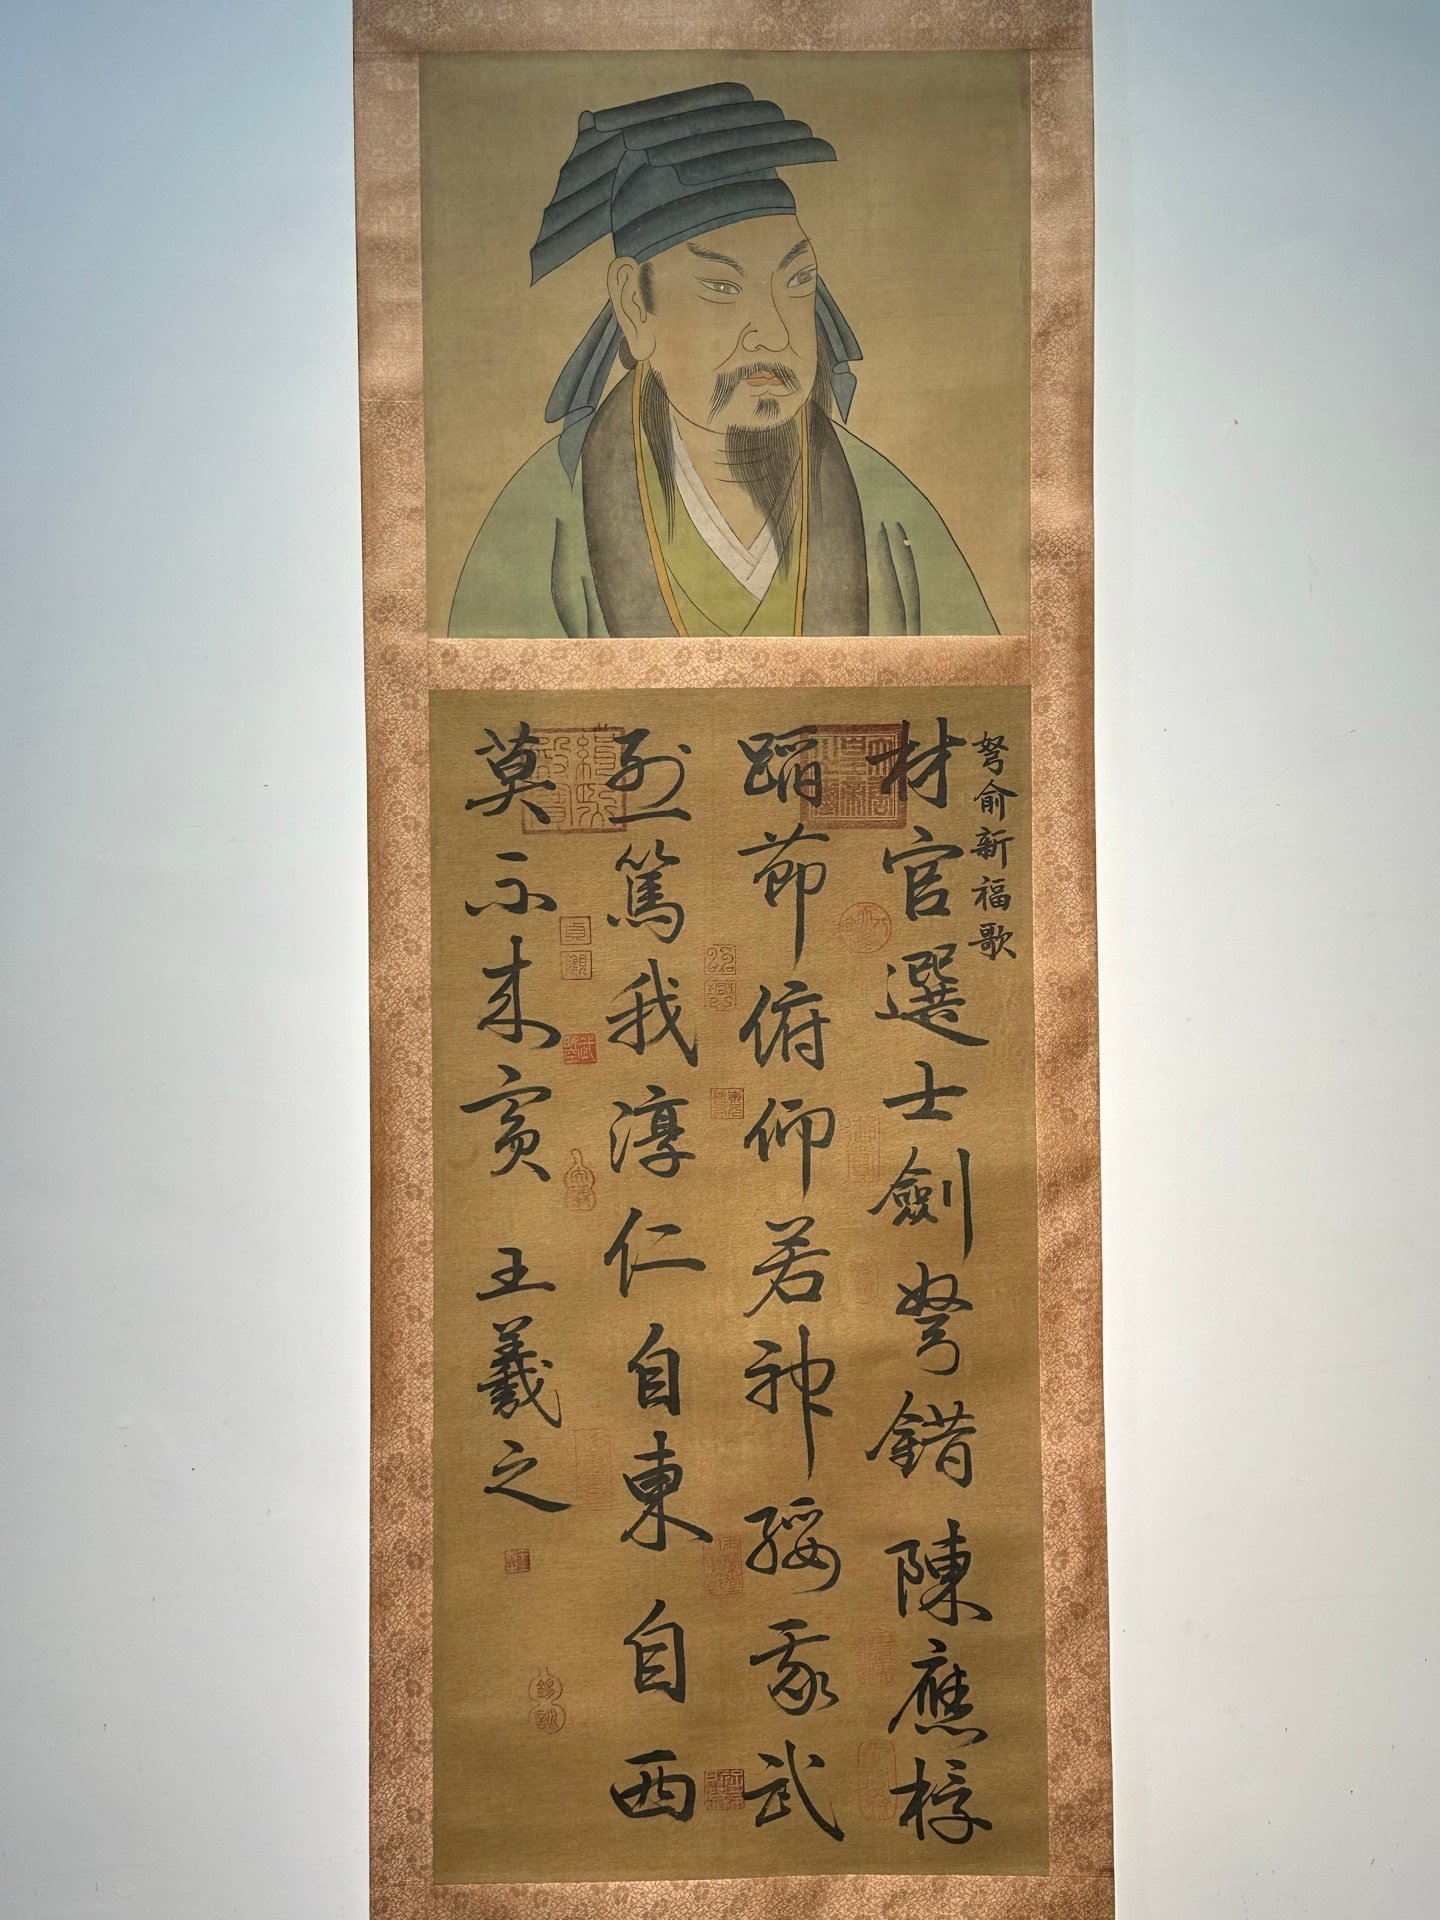 弩俞新福歌
材官選士劍弩錯陳應桴
蹈節俯仰若神綏我武
烈篤我淳仁自東自西
莫不来賓 王羲之
貞觀